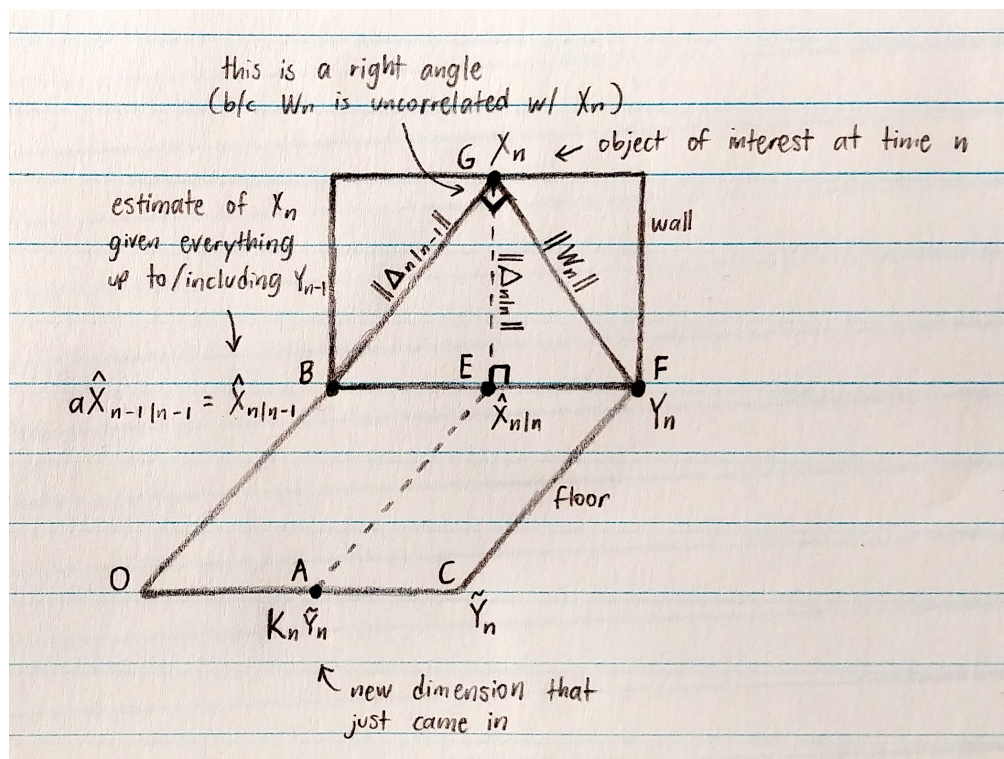 this is a right angle
(b/c Wₙ is uncorrelated w/ Xₙ)
G Xₙ ← object of interest at time n
estimate of Xₙ
given everything
up to/including Yₙ₋₁
wall
||Δₙ|ₙ₋₁||
||Δₙ|ₙ||
||Wₙ||
B
E
F
aX̂ₙ₋₁|ₙ₋₁ = X̂ₙ|ₙ₋₁
X̂ₙ|ₙ
Yₙ
floor
O
A
C
KₙỸₙ
Ỹₙ
new dimension that
just came in